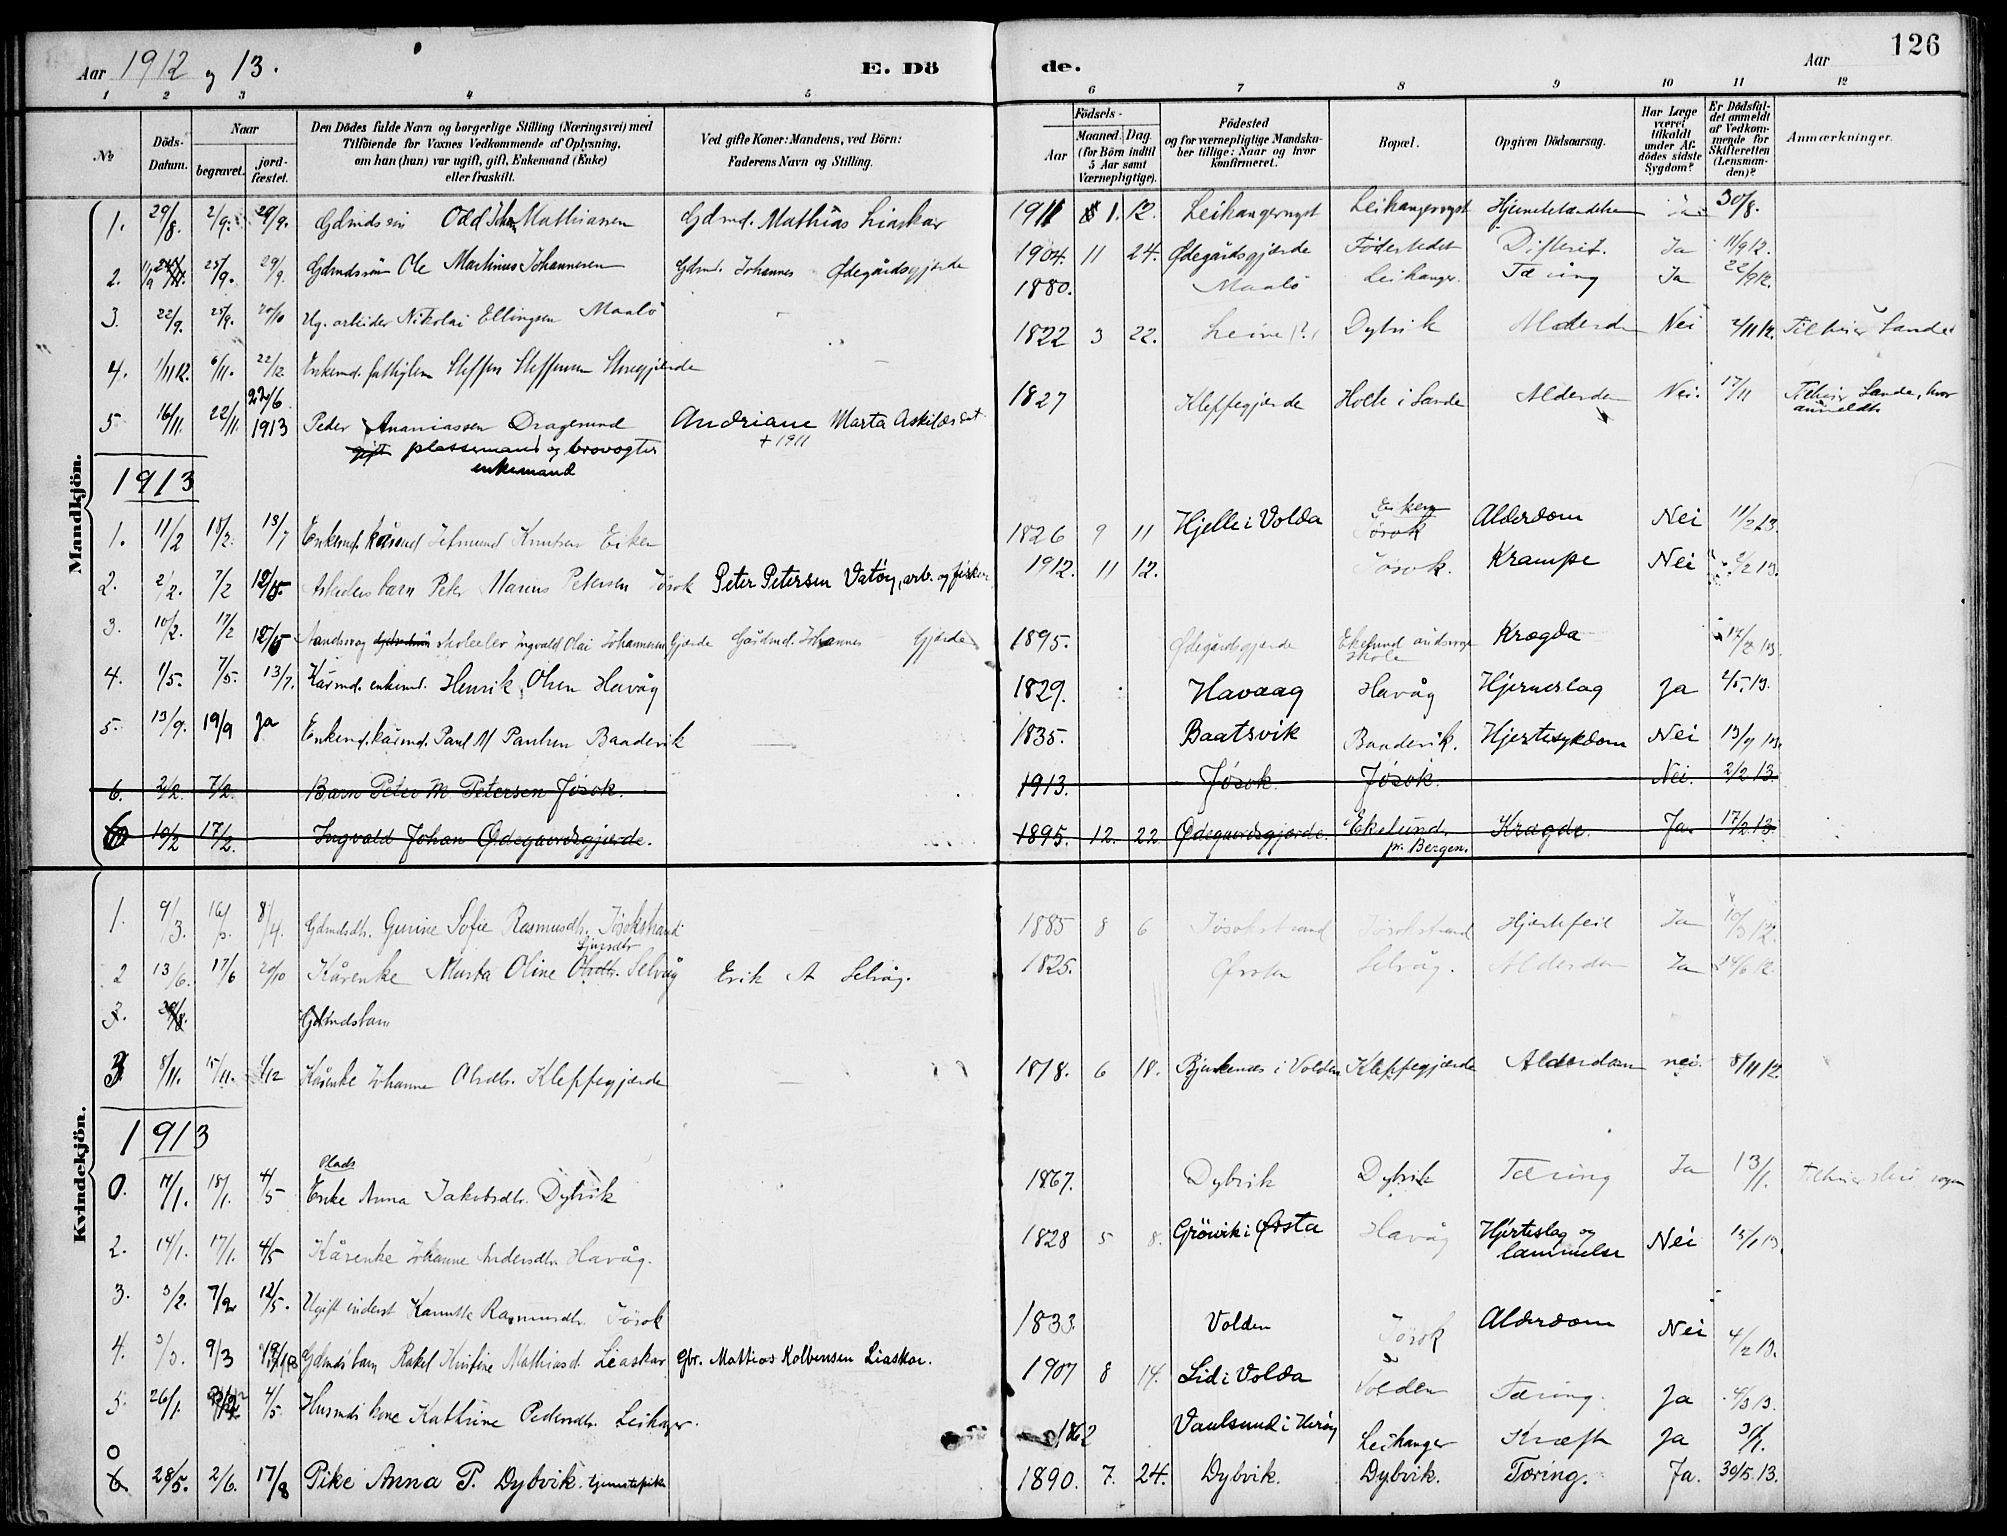 Aar 1912 og 13. E. Dö de. Aar 126
1 2 3 4 5 6 7 8 9 10 11 12
No Döds-Datum. Naar begravet. jordfæstet. Den Dödes fulde Navn og borgerlige Stilling (Næringsvei) med Tilföiende for Voxnes Vedkommende af Oplysning, om han (hun) var ugift, gift, Enkemand (Enke) eller fraskilt. Ved gifte Koner: Mandens, ved Börn: Faderens Navn og Stilling. Födsels- Aar Maaned. Dag. (for Börn indtil 5 Aar samt Værnepligtige). Födested og for værnepligtige Mandskaber tillige: Naar og hvor konfirmeret. Bopæl. Opgiven Dödsaarsag. Har Læge været tilkaldt under Afdödes sidste Sygdom? Er Dödsfaldet anmeldt af Vedkommende for Skifteretten (Lensmanden)? Anmærkninger.
Mandkjön.
1. 29/8 2/9. 29/9. Gdmds sön Odd Johan Mathiassen Gdmd. Mathias Liaskar 1911 1. 12. Leikangernyst Leikangernyst Ja 30/8.
2. 11/9 25/9. 29/9. Gdmdssön Ole Martinus Johannesen Gdmd. Johannes Ødegårdsgjærde 1904. 11 24. Ødegårdsgjærde Födestedet Difterit. Ja 11/9 12.
3. 22/9. 25/9. 20/10 Ug. arbeider Nikolai Ellingsen Maalö 1880. Maalö Leikanger. Tæring Ja 22/9 12.
4. 1/11 12. 6/11. 22/12. Enkemd. fattiglem Steffen Steffensen 1822 3 22. Leine (?) Dybvik Alderdom Nei 2/11 12. Tilhører Sande
5 16/11. 22/11 22/6 1913 Peder Ananiassen Dragesund Andriane Marta Askilds dat. 1827 Kleppegjerde Holte i Sande Alderdom Nei. 17/11 Tilhører Sande, hvor anmeldt
gift plassemand og brovogter + 1911
enkemand
1913
1. 11/2 18/2. 13/7 Enkemd. kårmd Knutsen Eiken 1826 9 11 Hjelle i Volda Eiken Jøsok Alderdom Nei 11/2 13.
2. 2/2. 7/2 12/5. Arbeiders barn Peter Marius Petersen Jösok Peter Petersen Vatöy, arb. og fisker 1912. 11 12. Jösok. Krampe Nei 2/2 13.
3. 10/2. 17/2 12/5 Aandssvag Skoleelev Ingvald Olai Johannesen Gjærde Gårdmd. Johannes Gjærde 1895. Ødegårdsgjærde Ekelund åndssvage skole Kragda 17/2 13.
4. 1/5. 7/5. 13/7. Kårmd. enkemd. Henrik Olsen Havåg 1829. Havaag Havåg Hjerneslag Ja 2/5. 13.
5. 13/9. 19/9 Ja Enkemd. kårmd. Paul M Paulsen Baadsvik 1835. Baatsvik Baadsvik. Hjertesykdom Nei 13/9 13.
6. 2/2. 7/2. Barn Peter M Petersen Jøsok. 1913. Jøsok Jøsok. Nei. 2/2 13.
10/2 17/2. Ingvald Johan Ødegaardsgjerde. 1895. 12. 22 Ødegaardsgjerde. Ekelund. pr. Bergen. Kragde. Ja. 17/2 13.
Kvindekjön.
1. 9/3. 16/3. 8/4. Gdmdsdtr. Gurine Sofie Rasmusdtr. Jösokstrand 1885 8 6 Jösokstrand Jösokstrand Hjertefeil Ja 10/3 12.
2 13/6. 17/6 20/10 Kårenke Marta Oline Olsdtr. Sjursdtr Selvåg Erik A Selvåg. 1825. Ørsten Selvåg. Alderdom Ja 14/6 12.
3. 29/8. Gdmdsbarn
3 8/11. 15/11. 1/12 Kårenke Johanne Olsdtr. Kleppegjærde 1818. 6 18. Bjerkenes i Volden Kleppegjærde Alderdom nei. 8/11 12
1913
0. 7/1. 18/1. 4/5 Plads Enke Anna Jakobsdtr. Dybvik 1867. Dybvik Dybvik Tæring Ja 13/1.
2. 14/1. 17/1. 4/5 Kårenke Johanne Andersdtr. Havåg. 1828 5 8. Gröivik i Ørsta Havåg Hjerteslag og lammelse Nei 15/1 13.
3. 3/2. 7/2 12/5. Ugift inderst Karnille Rasmusdtr. Jösok 1833. Volden Jösok Alderdom Nei 4/2 13.
4. 3/3. 9/3 Gdmds barn Rakel Mathiasd. Liaskar Gbr. Mathias Kolbensen Liaskar. 1907 8 14. Lid i Volda Volden Tæring. Ja 4/3 13.
5 26/1. 4/5. Husmds kone Kathrine Pedersdtr. Leikager. 1862 Vaulsund i Herøy Leikanger Kræft Ja 30/1.
0
6 28/5. 2/6. 17/8 Pike Anna P. Dybvik. tjenestepike 1890. 7. 24. Dybvik. Dybvik. Tæring. Ja. 30/5. 13.